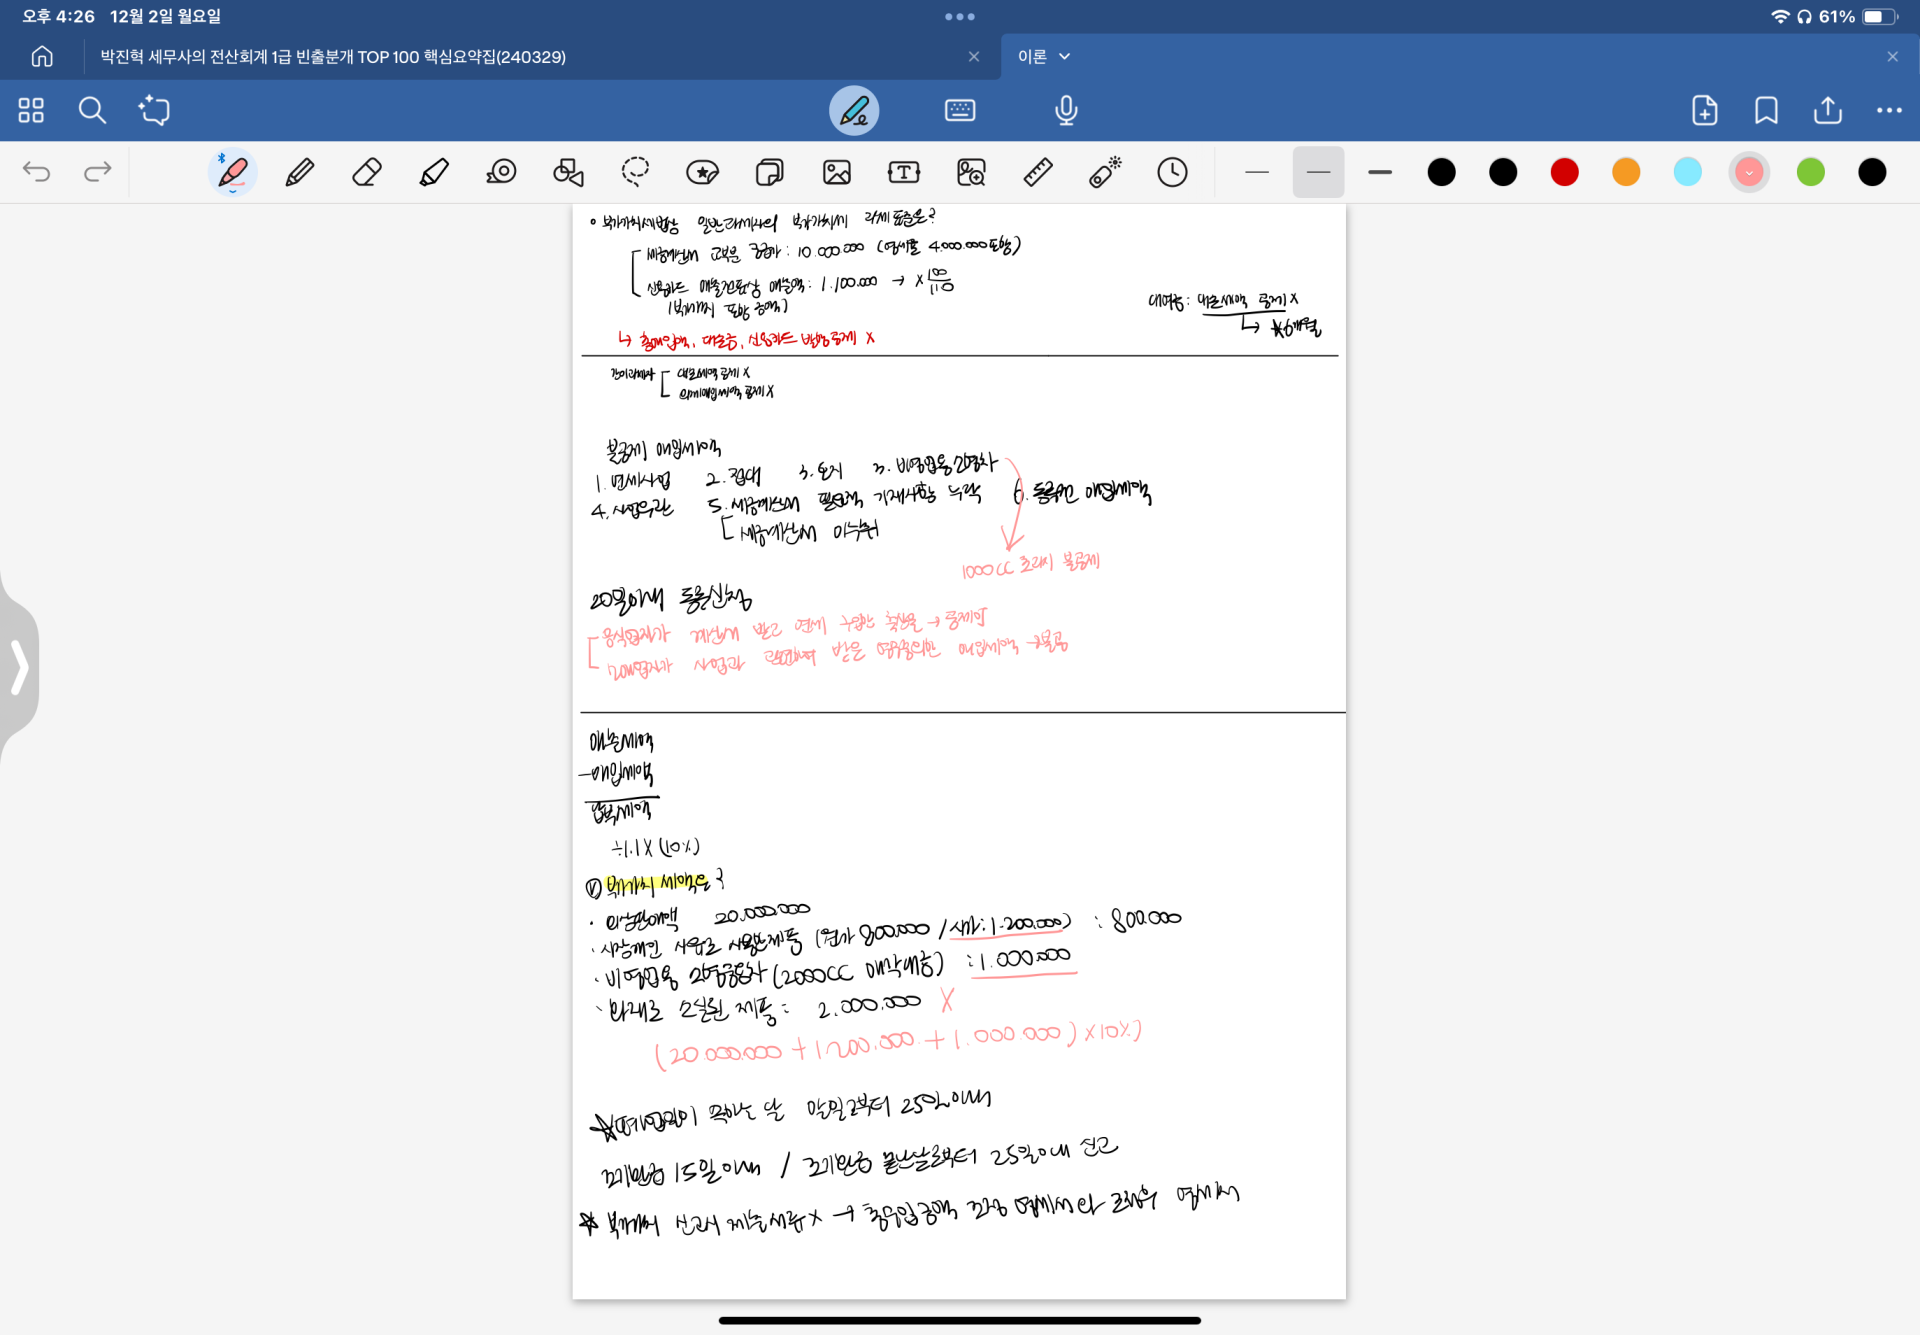 오후 4:26 12월 2일 월요일
61%
박진혁 세무사의 전산회계 1급 빈출분개 TOP 100 핵심요약집(240329)
이론
부가가치세법상 일반과세자의 부가가치세 과세표준은?
세금계산서 교부분 공급가 : 10.000.000 (영세율 4.000.000포함)
신용카드 매출전표상 매출액 : 1.100.000 → × 100/110
(부가가치세 포함 금액)
대여금 : 대손세액 공제 X
↳ ★6개월
↳ 총매입액, 대손금, 신용카드 발행공제 X
간이과세자 대손세액 공제 X
의제매입세액 공제 X
불공제 매입세액
1. 면세사업 2. 접대 3. 토지 3. 비영업용 소형차
4. 사업무관 5. 세금계산서 필요적 기재사항 누락 6. 등록전 매입세액
세금계산서 미수취
1000CC 초과시 불공제
20일이내 등록신청
음식업자가 계산서 받고 면세 구입한 축산물 → 공제
사업과 관련하여 받은 영수증의한 매입세액 → 불공
매출세액
-매입세액
납부세액
÷1.1 X (10%)
부가가치 세액은?
· 외상판매액 20.000.000
· 사장개인 사유로 사용한 제품 (원가 800.000 / 시가 : 1.200.000) : 800.000
· 비영업용 소형승용차 (2000CC 매각대금) : 1.000.000
· 화재로 소실된 제품 : 2.000.000 X
(20.000.000 + 1200.000. + 1.000.000) × 10%)
☆폐업일이 속하는 달 말일부터 25일이내
조기환급 15일이내 / 조기환급 끝난날로부터 25일이내 신고
☆ 부가세 신고시 제출서류 X → 총수입금액 조정 명세서와 명세서